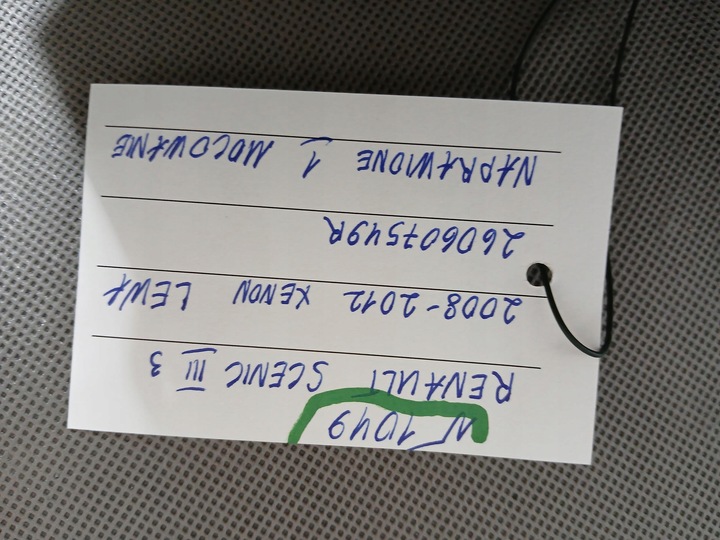 N 1049
RENAULT SCENIC III 3
2008-2012 XENON LEWA
260607549R
NAPRAWIONE 1 MOCOWANIE